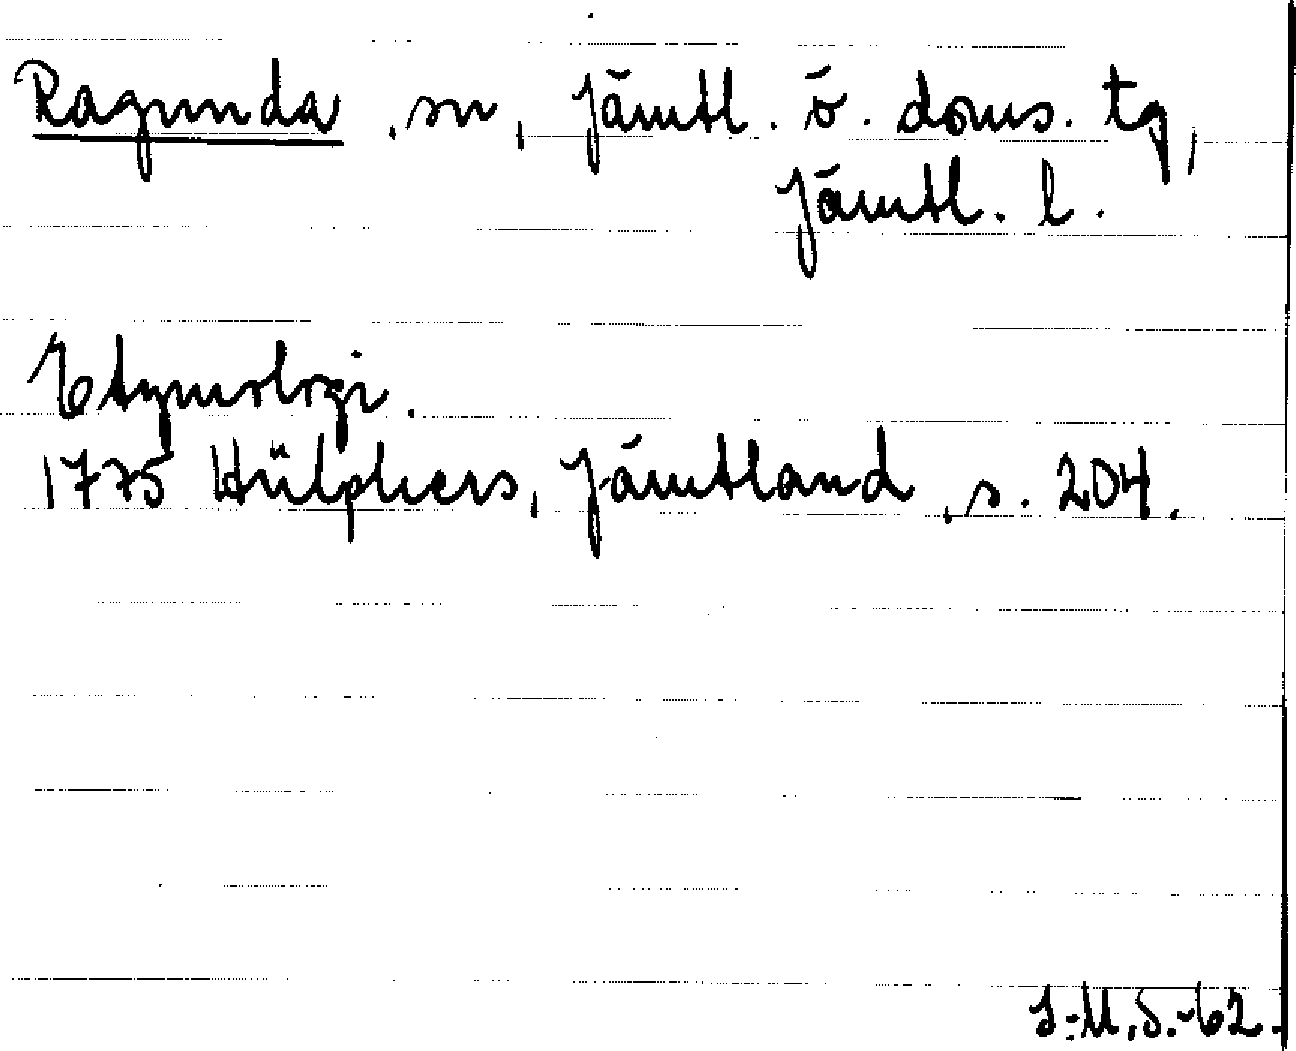 Ragunda, sn, Jämtl. ö. doms. tg,
Jämtl. l.
Etymologi.
1775 Hülphers, Jämtland, s. 204.
I-M.S.-62.